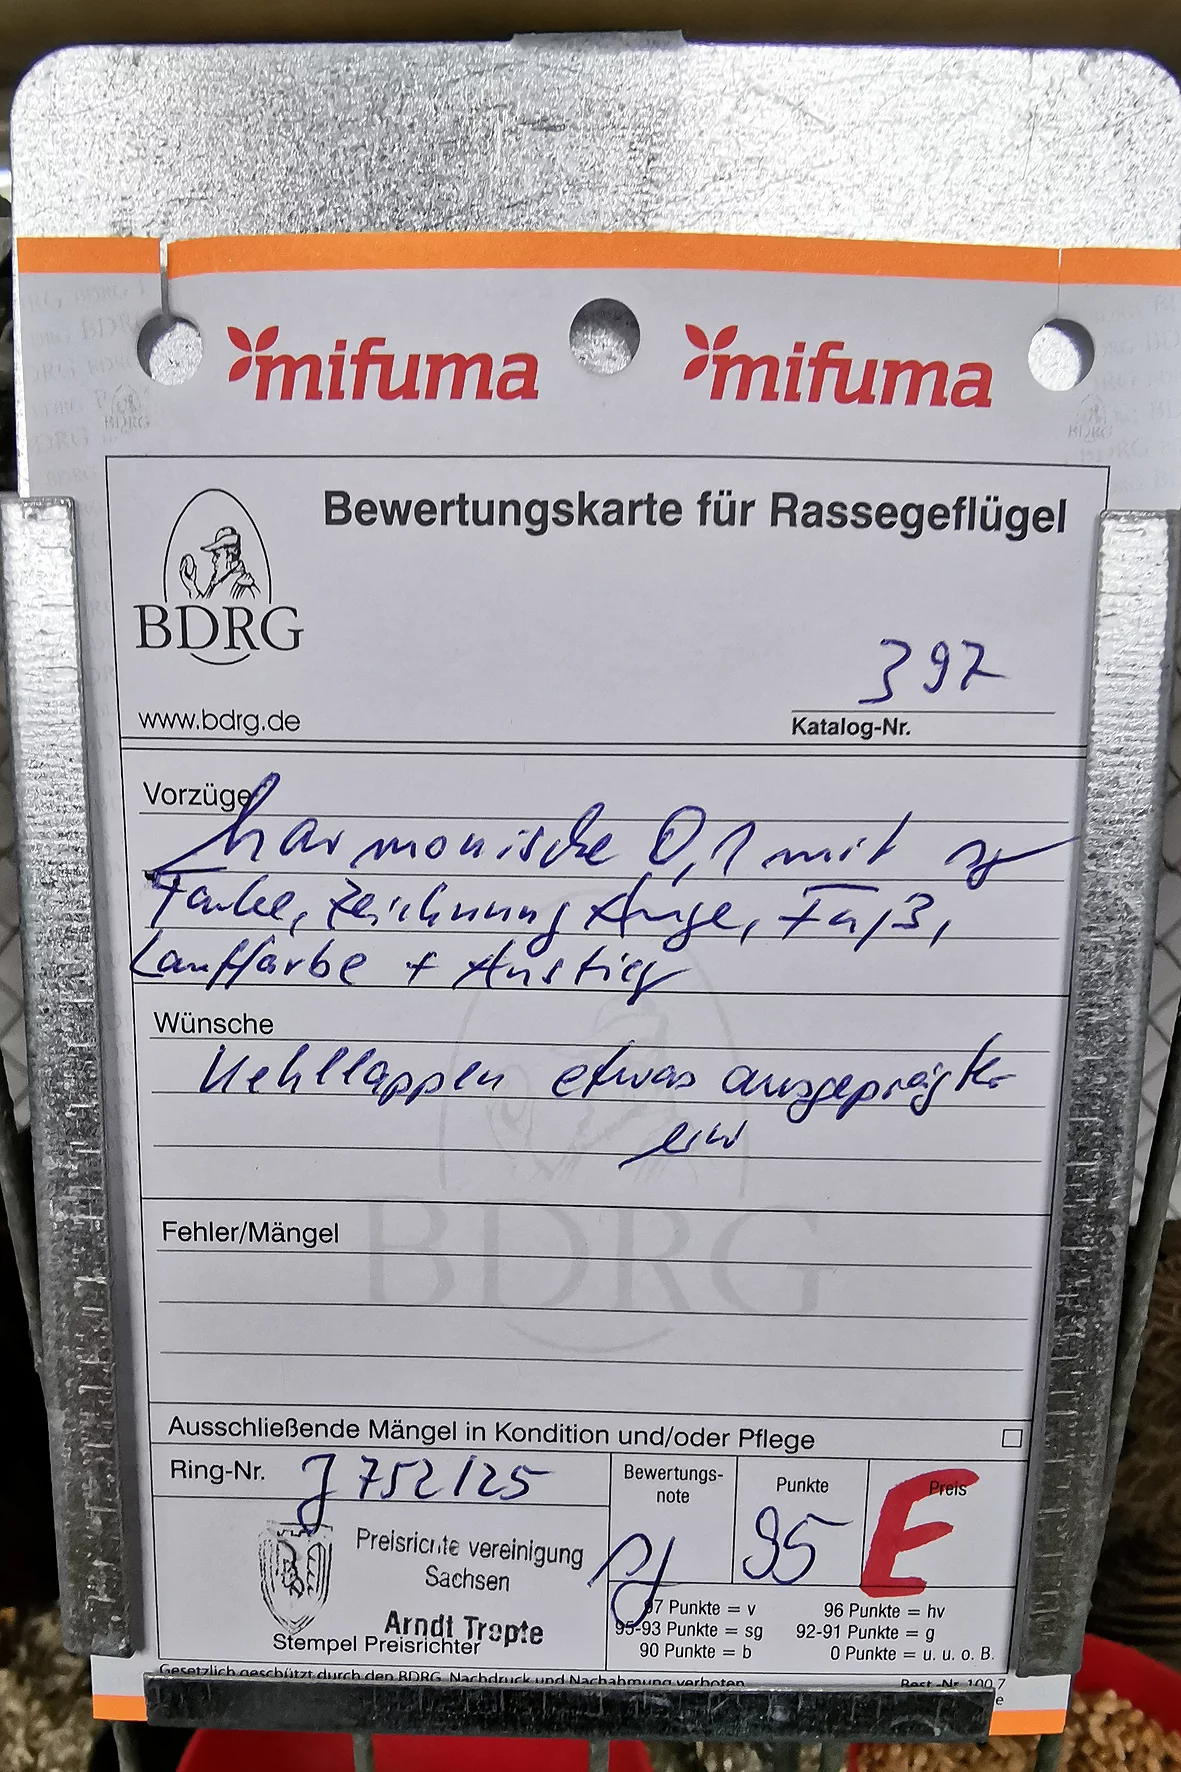 mifuma mifuma
Bewertungskarte für Rassegeflügel
BDRG
397
www.bdrg.de
Katalog-Nr.
Vorzüge
harmonische 0,1 mit sg
Farbe, Zeichnung Auge, Fuß,
Lauffarbe + Anstieg
Wünsche
Kehllappen etwas ausgeprägter
sein
BDRG
Fehler/Mängel
Ausschließende Mängel in Kondition und/oder Pflege
Ring-Nr. J 752/25
Bewertungs-
note
sg
Punkte
95
Preis
E
Preisrichte vereinigung
Sachsen
Arndt Tropte
Stempel Preisrichter
97 Punkte = v 96 Punkte = hv
95-93 Punkte = sg 92-91 Punkte = g
90 Punkte = b 0 Punkte = u. u. o. B.
Gesetzlich geschützt durch den BDRG. Nachdruck und Nachahmung verboten Best.-Nr. 100.7